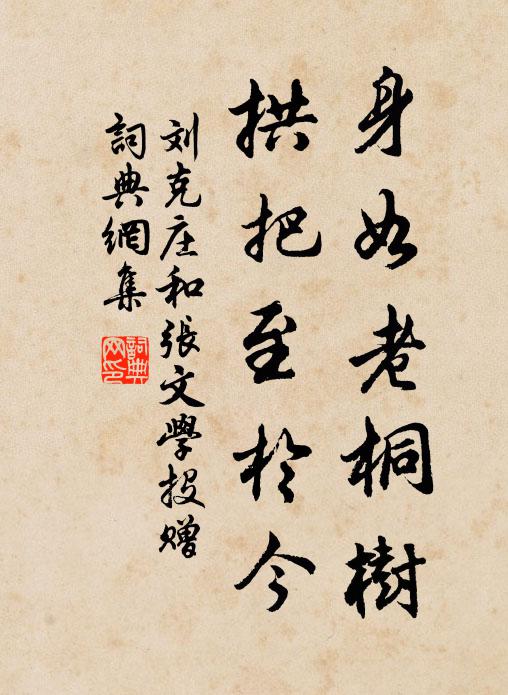 身如老桐樹
拱把至於今
刘克庄和張文學投贈
詞典網集
詞典網印